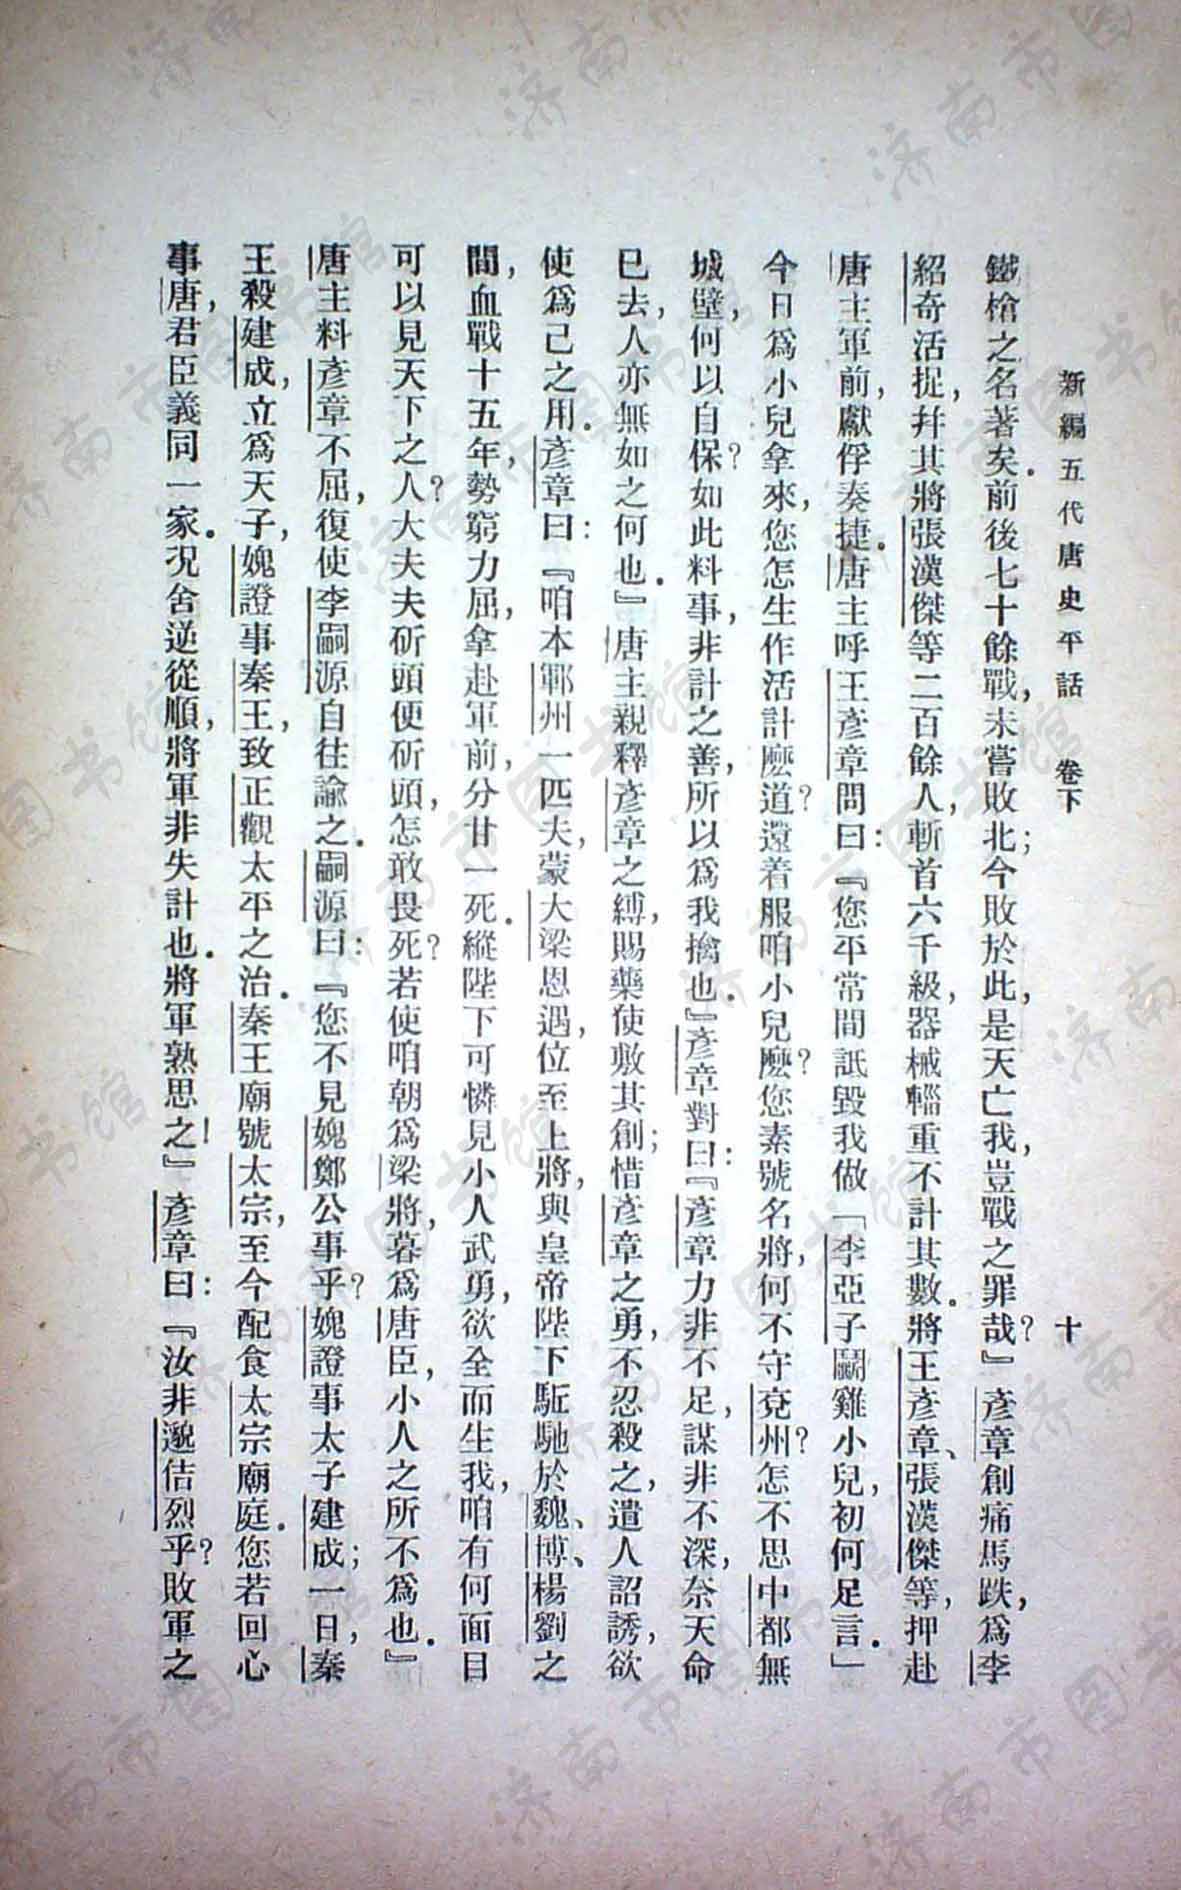 新編五代唐史平話　卷下　十
鐵槍之名著矣．前後七十餘戰，未嘗敗北；今敗於此，是天亡我，豈戰之罪哉？』彥章創痛馬跌，爲李
紹奇活捉，幷其將張漢傑等二百餘人，斬首六千級，器械輜重不計其數．將王彥章、張漢傑等，押赴
唐主軍前，獻俘奏捷．唐主呼王彥章問曰：『您平常間詆毀我做「李亞子鬬雞小兒，初何足言．」
今日爲小兒拿來，您怎生作活計麼道？還着服咱小兒麼？您素號名將，何不守兗州？怎不思中都無
城壁，何以自保？如此料事，非計之善，所以爲我擒也．』彥章對曰：『彥章力非不足，謀非不深，奈天命
已去，人亦無如之何也．』唐主親釋彥章之縛，賜藥使敷其創；惜彥章之勇，不忍殺之，遣人詔誘，欲
使爲己之用．彥章曰：『咱本鄆州一匹夫，蒙大梁恩遇，位至上將，與皇帝陛下駈馳於魏、博、楊劉之
間，血戰十五年，勢窮力屈，拿赴軍前，分甘一死．縱陛下可憐見小人武勇，欲全而生我，咱有何面目
可以見天下之人？大夫夫斫頭便斫頭，怎敢畏死？若使咱朝爲梁將，暮爲唐臣，小人之所不爲也．』
唐主料彥章不屈，復使李嗣源自往諭之．嗣源曰：『您不見媿鄭公事乎？媿證事太子建成；一日，秦
王殺建成，立爲天子，媿證事秦王，致正觀太平之治．秦王廟號太宗，至今配食太宗廟庭．您若回心
事唐，君臣義同一家．況舍逆從順，將軍非失計也．將軍熟思之！』彥章曰：『汝非邈佶烈乎？敗軍之
济南市图书馆